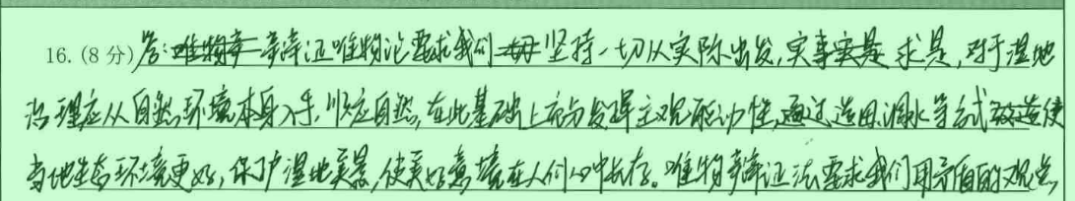 16. (8分) 答:唯物辩 辩证唯物论要求我们一切 坚持一切从实际出发,实事实是 求是,对于湿地
治理应从自然环境本身入手,顺应自然,在此基础上应当发挥主观能动性,通过造田、调水等方式改造使
当地生态环境更好,保护湿地美景,使美好意境在人们心中长存。唯物辩证法要求我们用矛盾的观点,